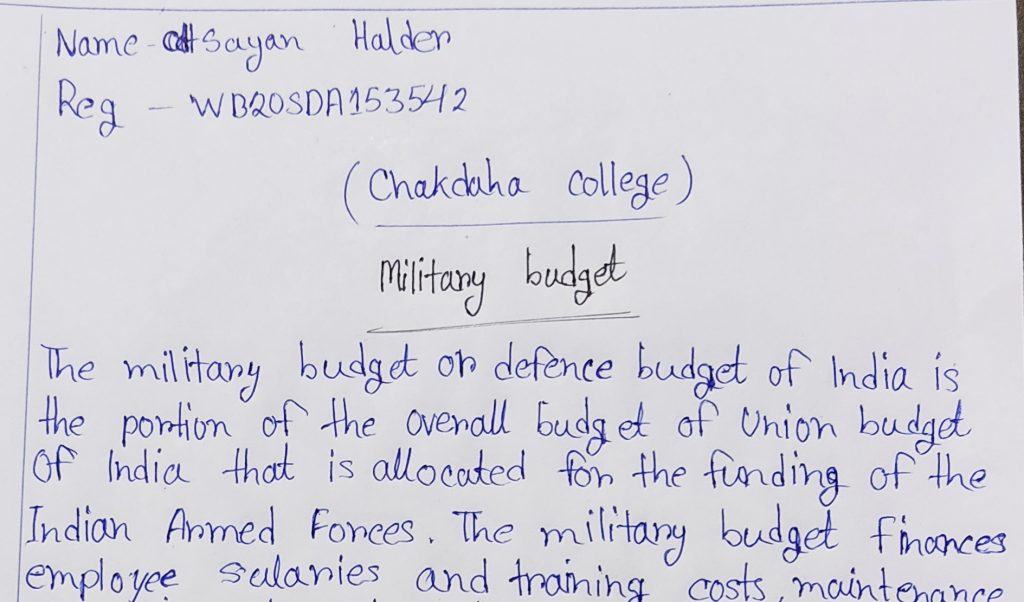 Name - Sayan Halder
Reg - WB20SDA153542
(Chakdaha college)
Military budget
The military budget or defence budget of India is
the portion of the overall budget of Union budget
of India that is allocated for the funding of the
Indian Armed Forces. The military budget finances
employee salaries and training costs, maintenance